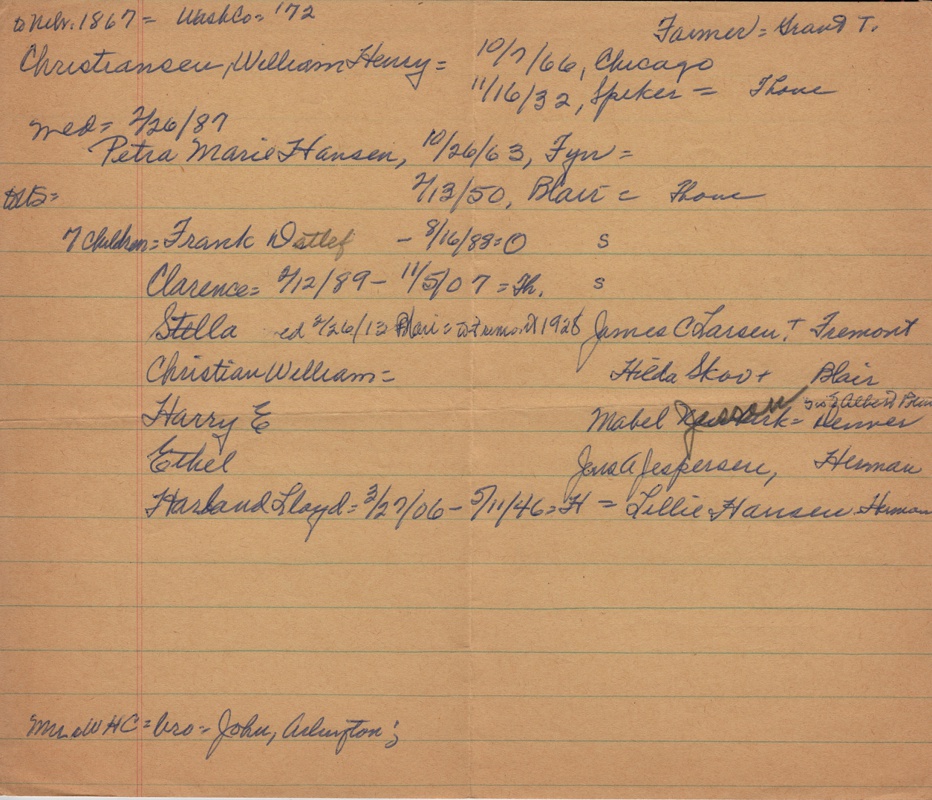 to Nebr. 1867 = Wash Co = '72
Farmer = Grant T.
Christiansen, William Henry = 10/7/66, Chicago
11/16/32, Spiker = Thone
med = 2/26/87
Petra Marie Hansen, 10/26/63, Fyn =
2/13/50, Blair = Thone
to US =
7 Children = Frank Detlef - 8/16/88 = O S
Clarence = 2/12/89 - 11/5/07 = Th. S
Stella ed 2/26/13 Blair = to Fremont 1926 James C Larsen + Fremont
Christian William = Hilda Skov + Blair
Harry E Mabel Jesson = Denver
Ethel Jens A Jespersen, Herman
Harland Lloyd = 3/27/06 - 5/11/46 = H = Lillie Hansen Herman
Mrs WHC = bro = John, Arlington ;